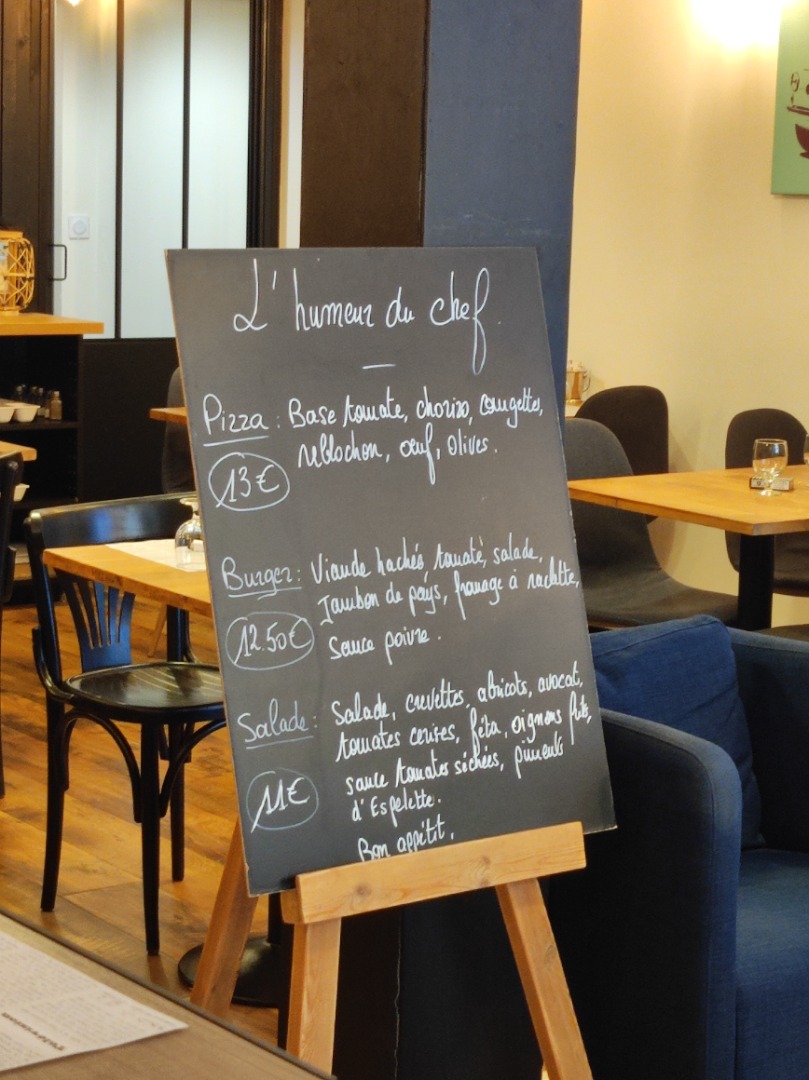 L'humeur du chef.
Pizza : Base tomate, chorizo, courgettes,
reblochon, œuf, olives.
13€
Burger : Viande haché, tomate, salade,
Jambon de pays, fromage à raclette,
12.50€
Sauce poivre.
Salade : Salade, crevettes, abricots, avocat,
tomates cerises, féta, oignons frits,
11€
sauce tomates séchées, piments
d'Espelette.
Bon appétit.